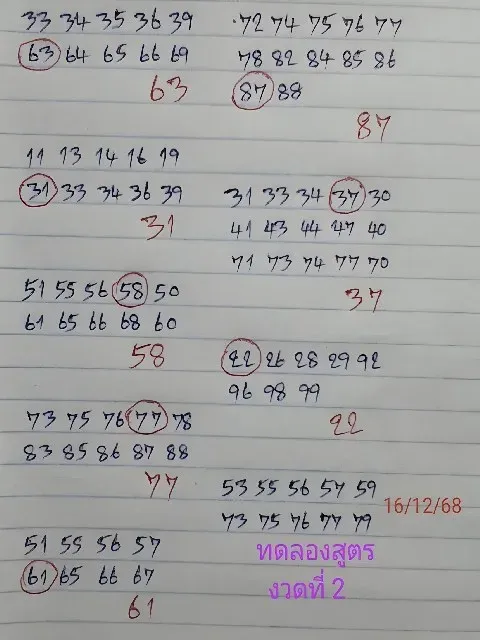 33 34 35 36 39
63 64 65 66 69
63
11 13 14 16 19
31 33 34 36 39
31
51 55 56 58 50
61 65 66 68 60
58
73 75 76 77 78
83 85 86 87 88
77
51 55 56 57
61 65 66 67
61
72 74 75 76 77
78 82 84 85 86
87 88
87
31 33 34 37 30
41 43 44 47 40
71 73 74 77 70
37
22 26 28 29 92
96 98 99
22
53 55 56 57 59
73 75 76 77 79
16/12/68
ทดลองสูตร
งวดที่ 2